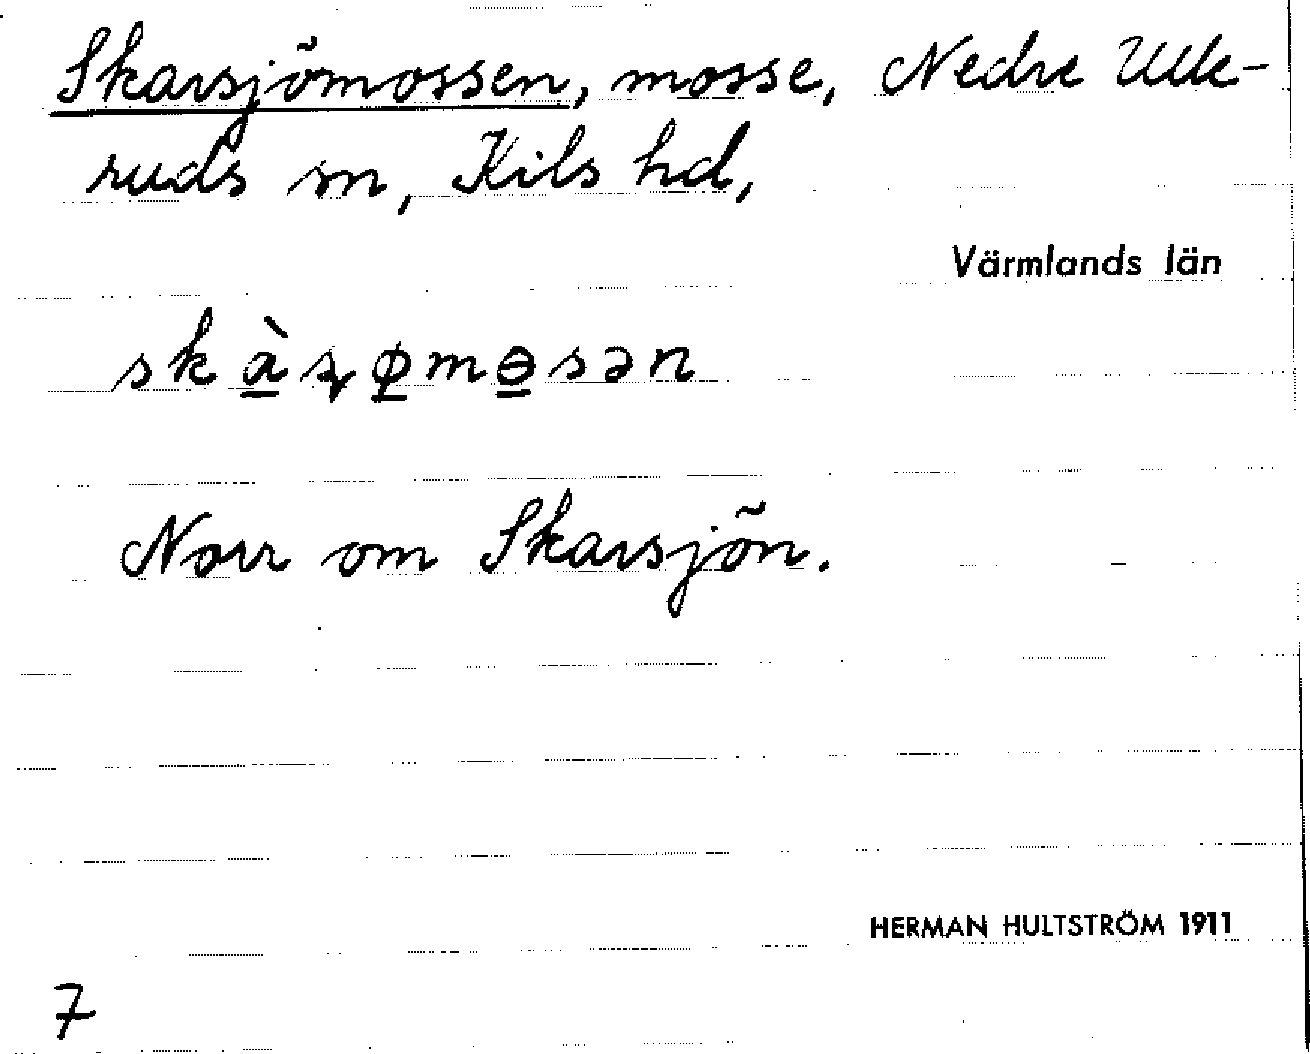 Skarsjömossen, mosse, Nedre Ulle-
ruds sn, Kils hd,
Värmlands län
skà̠ʂø̠mɵ̠sən
Norr om Skarsjön.
HERMAN HULTSTRÖM 1911
7